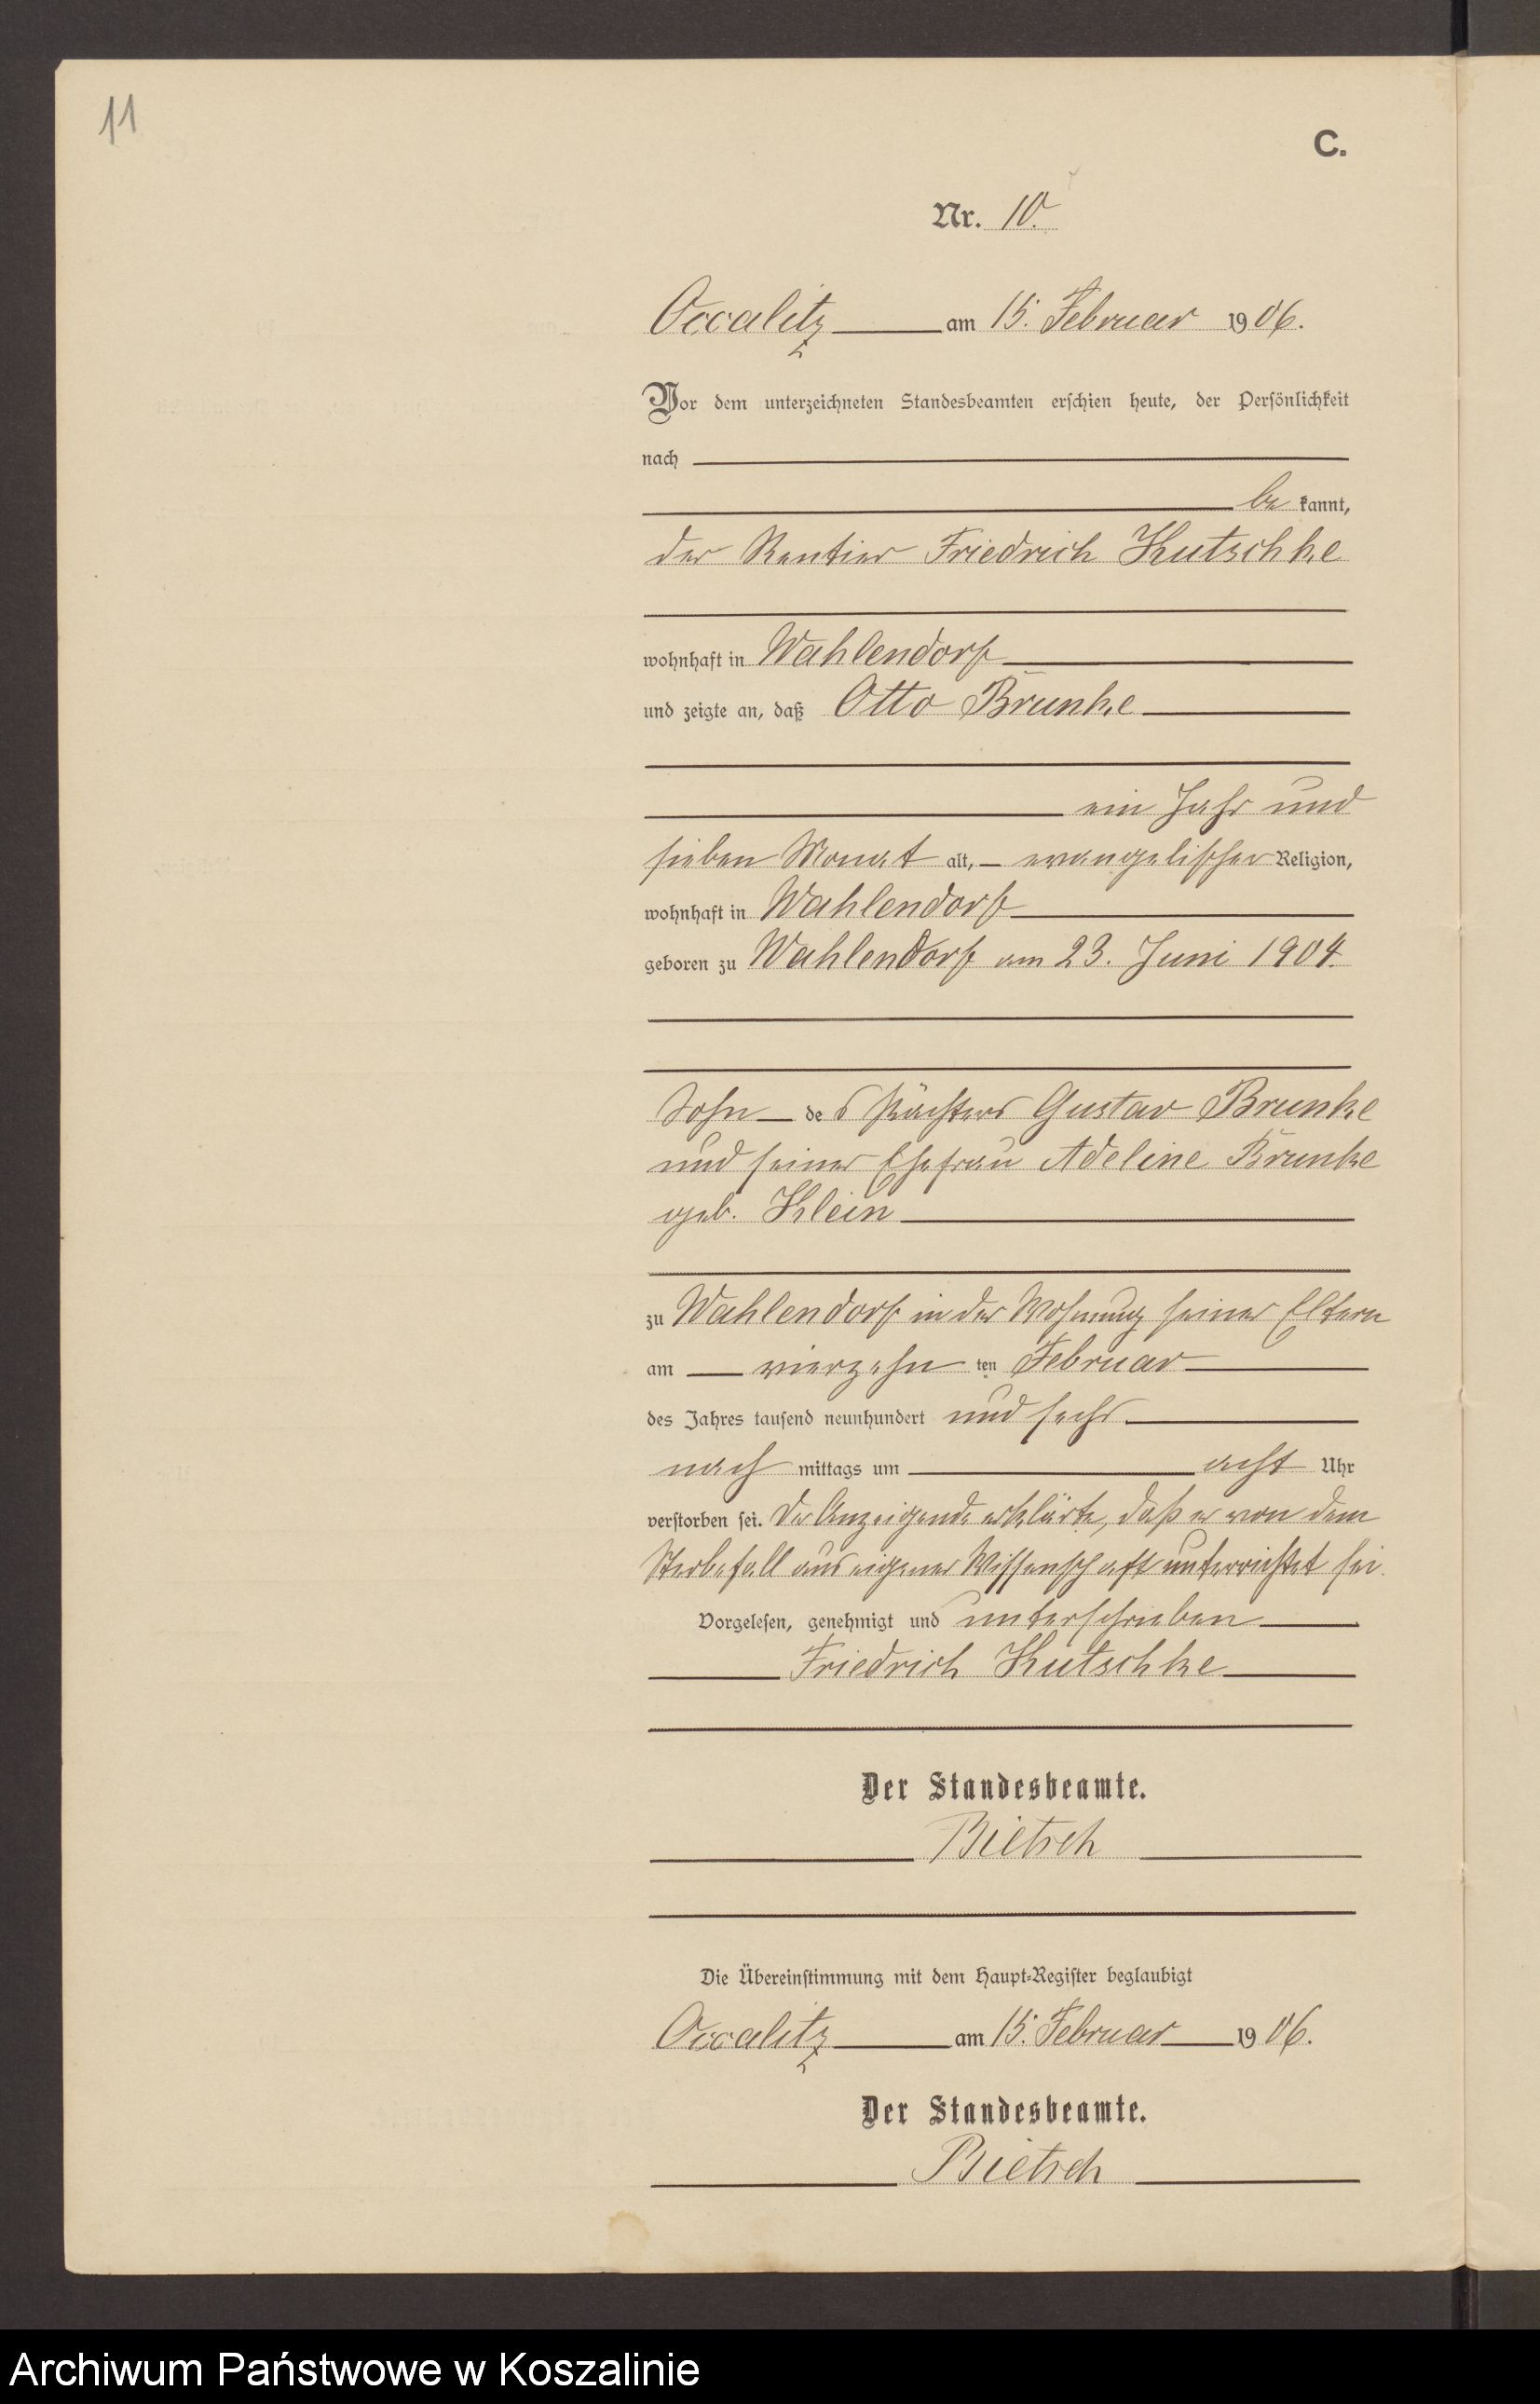 11
C.
Nr. 10.
Occalitz am 15. Februar 1906.
Vor dem unterzeichneten Standesbeamten erschien heute, der Persönlichkeit
nach
be kannt,
der Rentier Friedrich Kutschke
wohnhaft in Wahlendorf
und zeigte an, daß Otto Brunke
ein Jahr und
sieben Monat alt, evangelischer Religion,
wohnhaft in Wahlendorf
geboren zu Wahlendorf am 23. Juni 1904.
Sohn des Pächters Gustav Brunke
und seiner Ehefrau Adeline Brunke
geb. Klein
zu Wahlendorf in der Wohnung seiner Eltern
am vierzehn ten Februar
des Jahres tausend neunhundert und sechs
nach mittags um acht Uhr
verstorben sei. Der Anzeigende erklärte, daß er von dem
Sterbefall aus eigener Wissenschaft unterrichtet sei.
Vorgelesen, genehmigt und unterschrieben
Friedrich Kutschke
Der Standesbeamte.
Bietsch
Die Übereinstimmung mit dem Haupt-Register beglaubigt
Occalitz am 15. Februar 1906.
Der Standesbeamte.
Bietsch
Archiwum Państwowe w Koszalinie